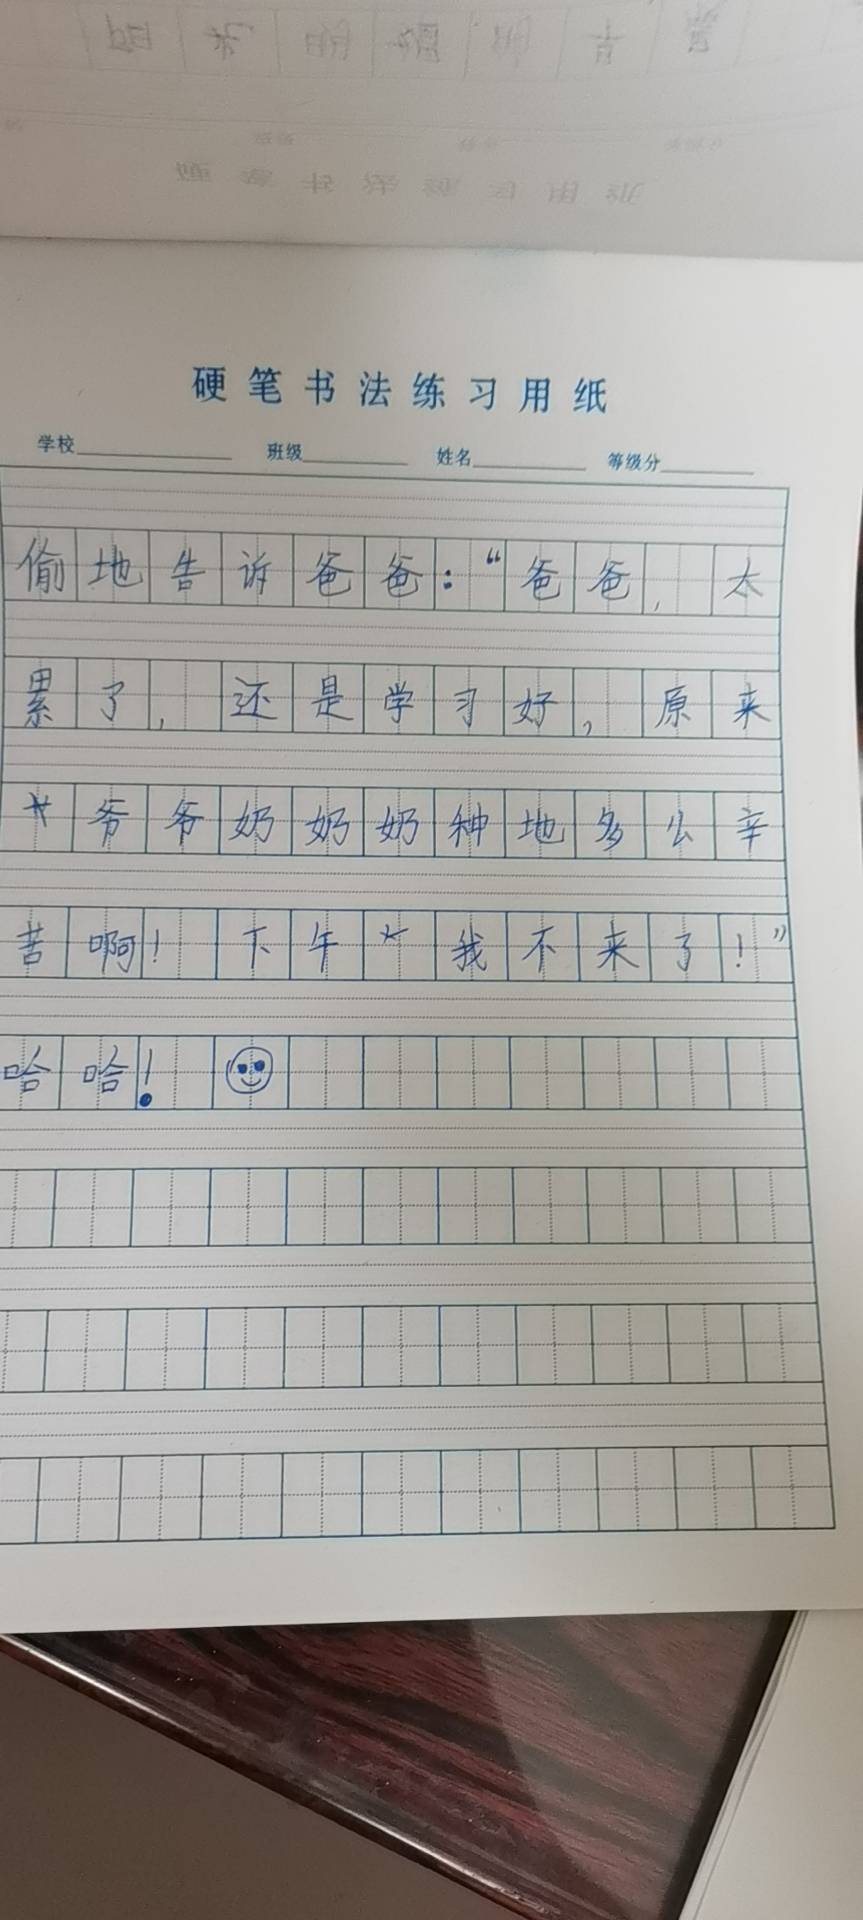 硬笔书法练习用纸
学校 班级 姓名 等级分
偷地告诉爸爸：“爸爸，太
累了，还是学习好，原来
爷爷奶奶奶种地多么辛
苦啊！下午我不来了！”
哈哈！